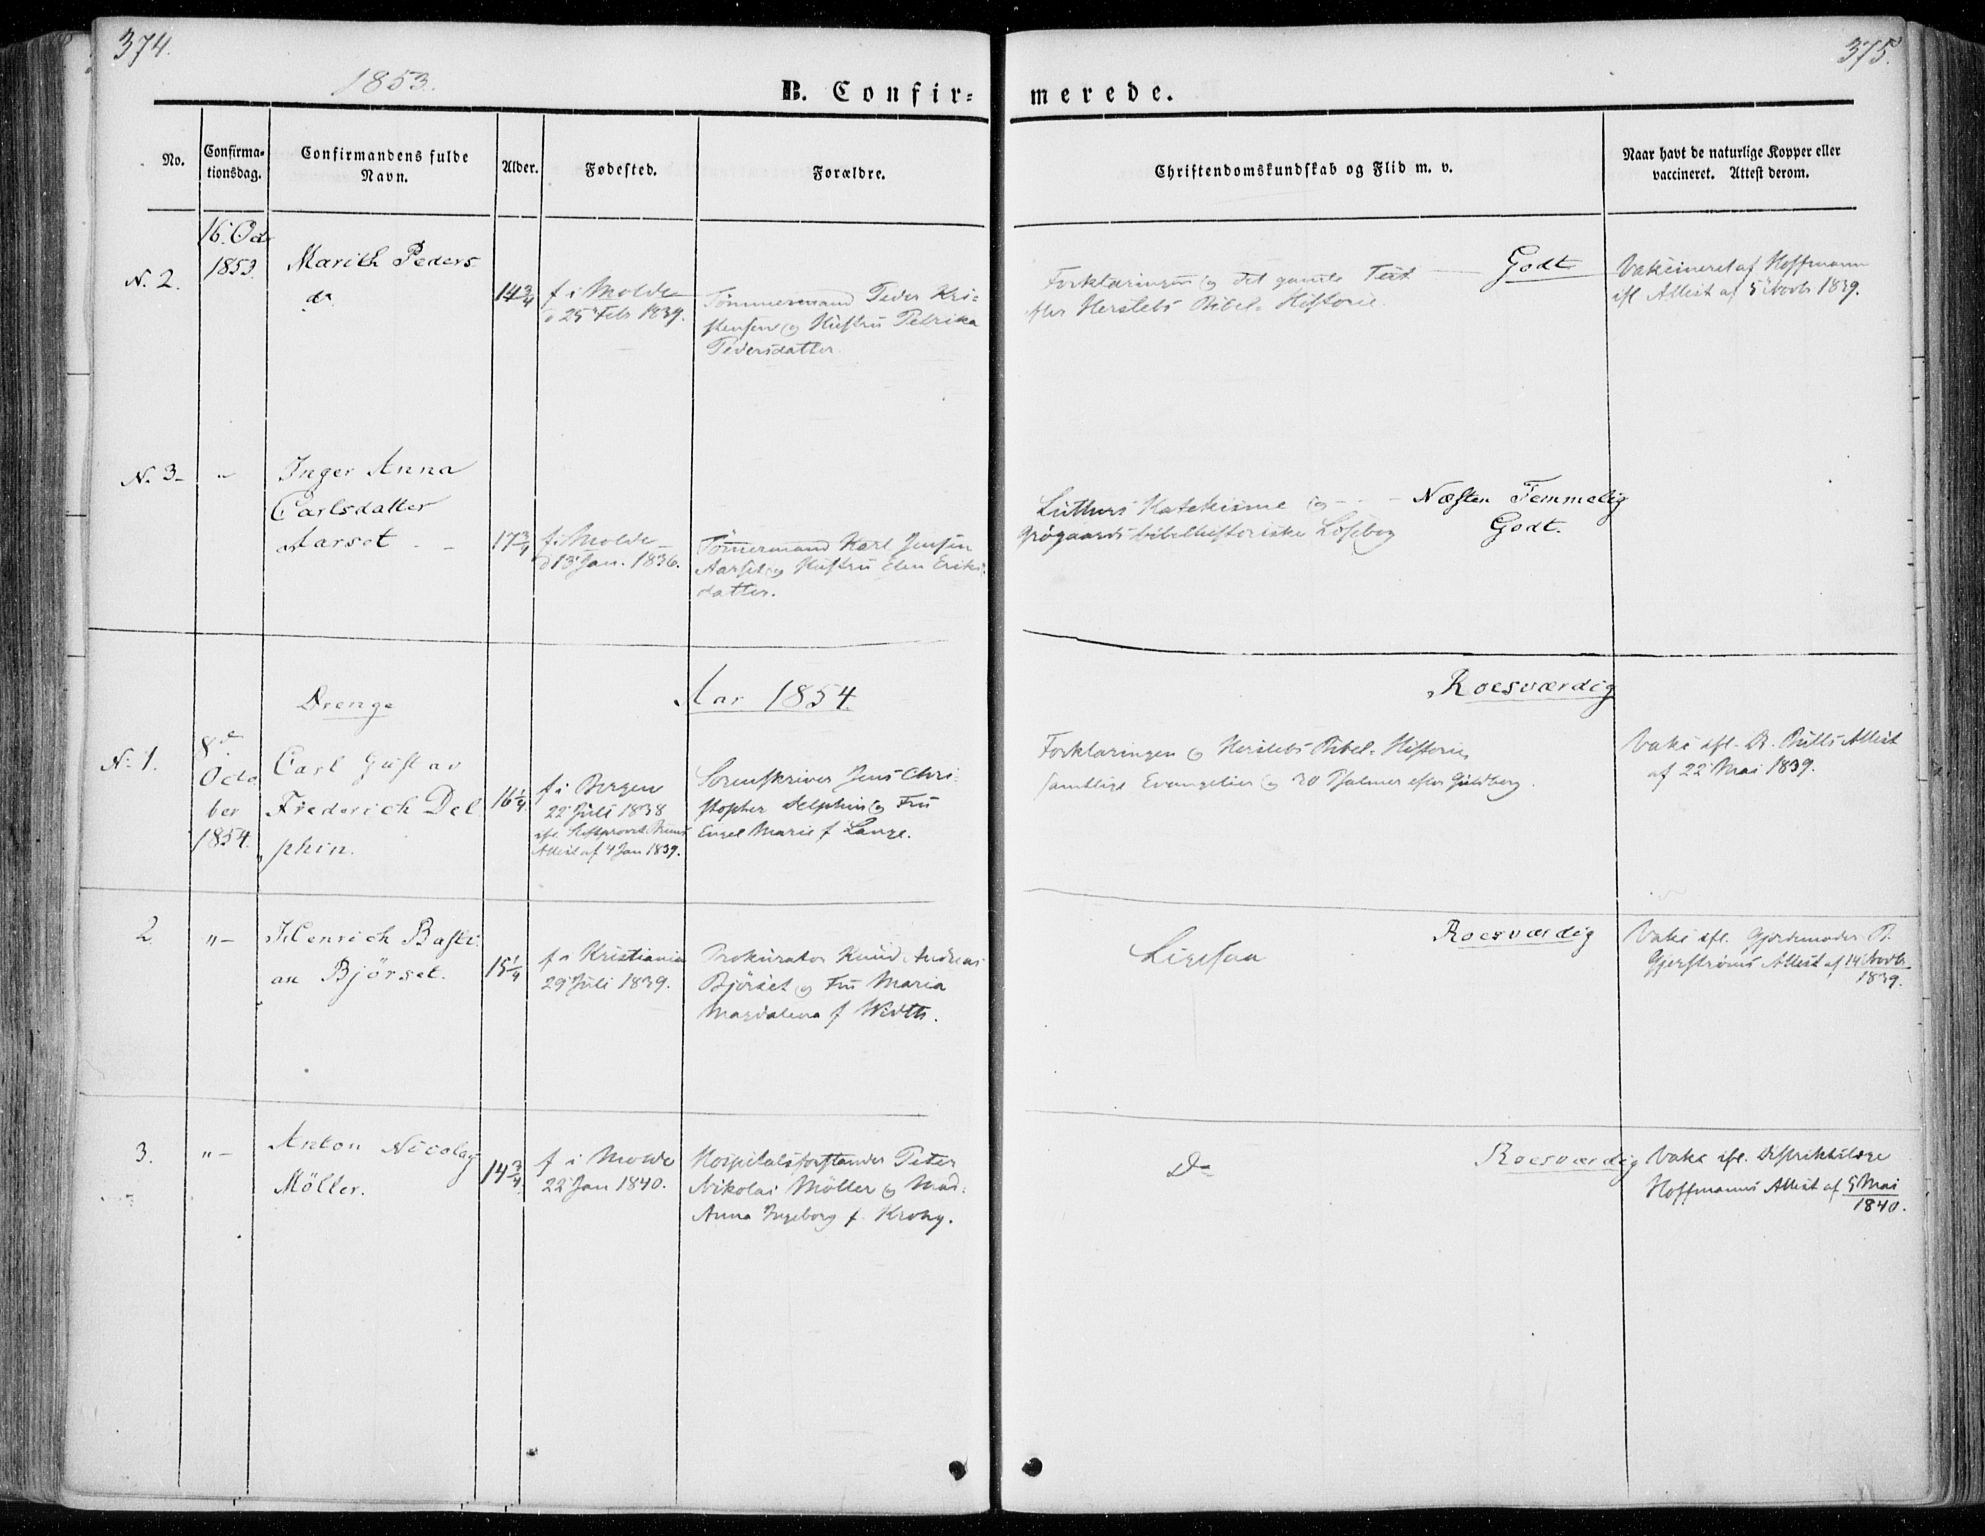 374.
375.
1853.
B. Confir=
merede.
No.
Confirma=
tionsdag.
Confirmandens fulde
Navn.
Alder.
Fødested.
Forældre.
Christendomskundskab og Flid m. v.
Naar havt de naturlige Kopper eller
vaccineret. Attest derom.
N. 2.
16. Oct
1853.
Marith Peders
dr.
14 3/4
f i Molde
d 25 Feb 1839.
Tömmermand Peder Kri=
stensen og Hustru Petrika
Pedersdatter.
Forklaringen og det gamle Test
efter Herslebs Bibel=Historie.
Godt
Vakcineret af Hoffmann
ifl Attest af 5 Novb 1839.
N. 3
"
Inger Anna
Carlsdatter
Aarset
17 3/4
f i Molde
d 13 Jan. 1836.
Tömmermand Karl Jensen
Aarset og Hustru Elen Eriks=
datter.
Luthers Katekisme og
Grögaards bibelhistoriske Læsebog
Næsten Temmelig
Godt.
Drenge
Aar 1854.
N. 1.
8de
Octo
ber
1854.
Carl Gustav
Frederich Del
phin.
16 1/4
f i Bergen
22 Juli 1838
ifl. Stiftsprovst
Attest af 4 Jan 1839.
Sorenskriver Jens Chri=
stopher Delphin og Fru
Engel Marie f Lange.
Forklaringen og Herslebs Bibel=Historie
samtlige Evangelier og 20 Psalmer efter Guldberg.
Roesværdig
Vakc ifl. D. Bulls Attest
af 22 Mai 1839.
2.
"
Henrich Basti
an Bjørset.
15 1/4
f i Kristiania
29 Juli 1839.
Prokurator Knud Andreas
Björset og Fru Maria
Magdalena f Width.
Ligesaa
Roesværdig
Vakc ifl. Gjordemoder B.
Gjerströms Attest af 14 Novb
1839.
3.
"
Anton Nicolay
Möller.
14 3/4
f i Molde
22 Jan 1840.
Hospitalsforstander Peter
Nikolai Möller og Mad.
Anna Ingeborg f. Krohg.
Do
Roesværdig
Vakc ifl. Distriktslæge
Hoffmanns Attest af 9 Mai
1840.